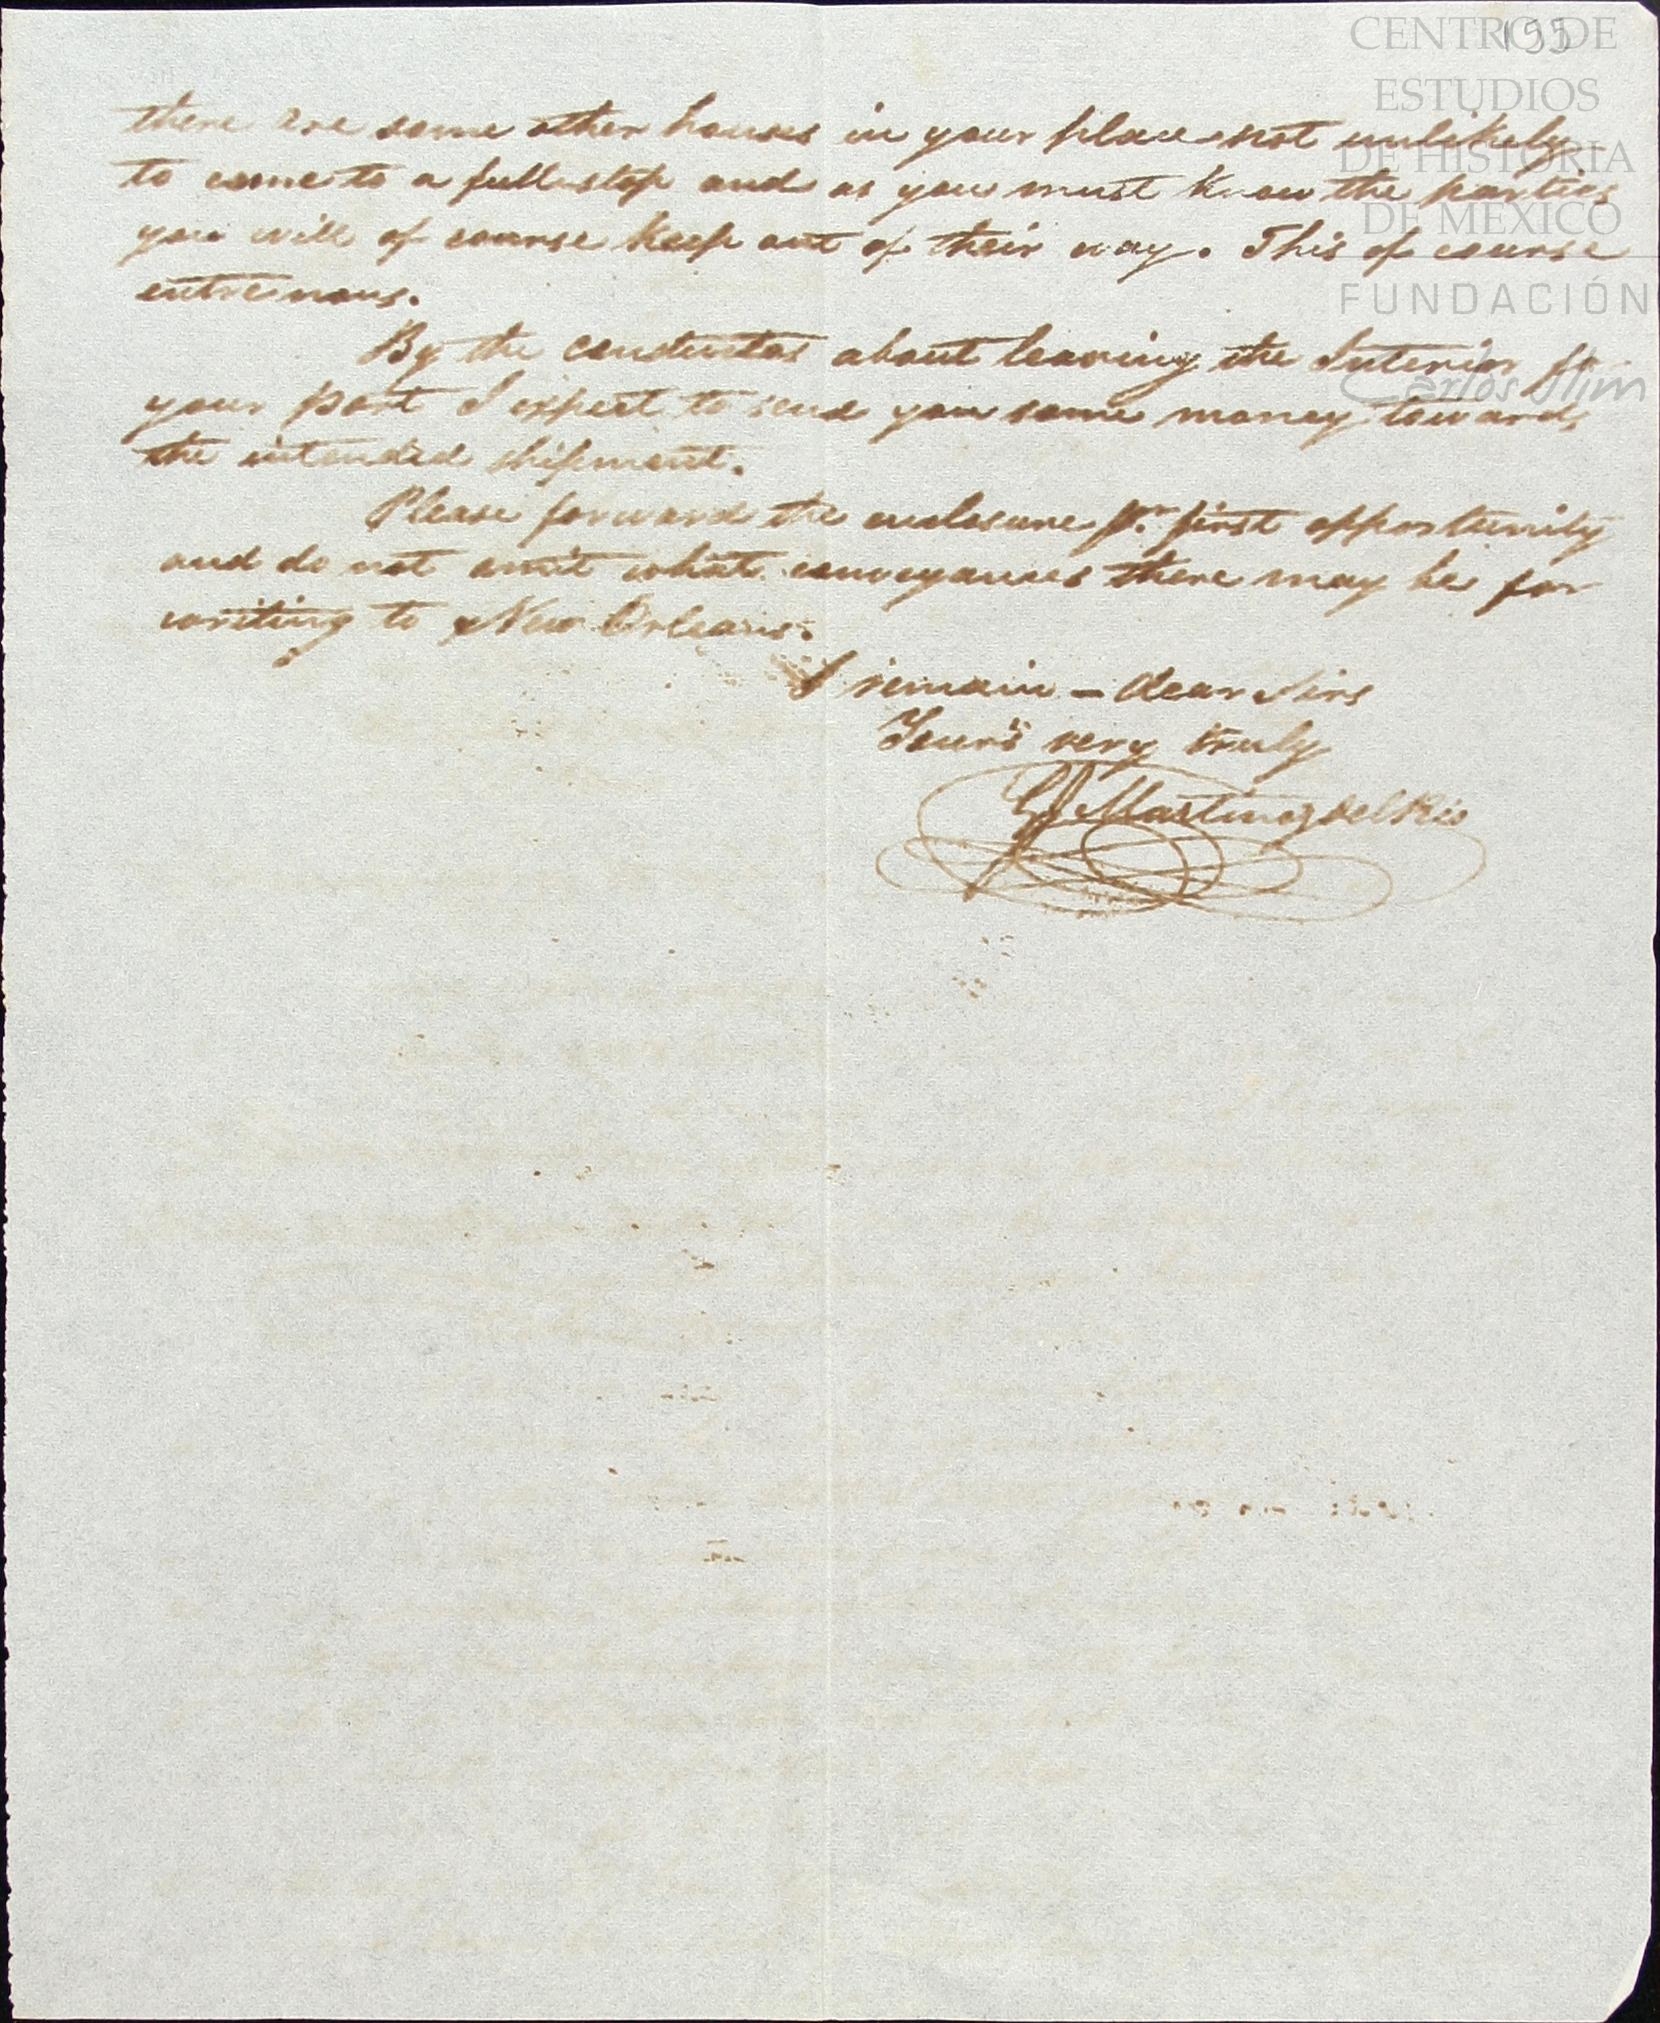 155
CENTRO DE
ESTUDIOS
DE HISTORIA
DE MÉXICO
FUNDACIÓN
Carlos Slim
there are some other houses in your place not unlikely
to come to a full stop and as you must know the parties
you will of course keep out of their way. This of course
entre nous.
By the conductas about leaving the Interior for
your port I expect to send you some money towards
the intended shipment.
Please forward the enclosure pr. first opportunity
and do not omit what conveyances there may be for
writing to New Orleans.
I remain - dear Sirs
Your's very truly
Martinez del Rio